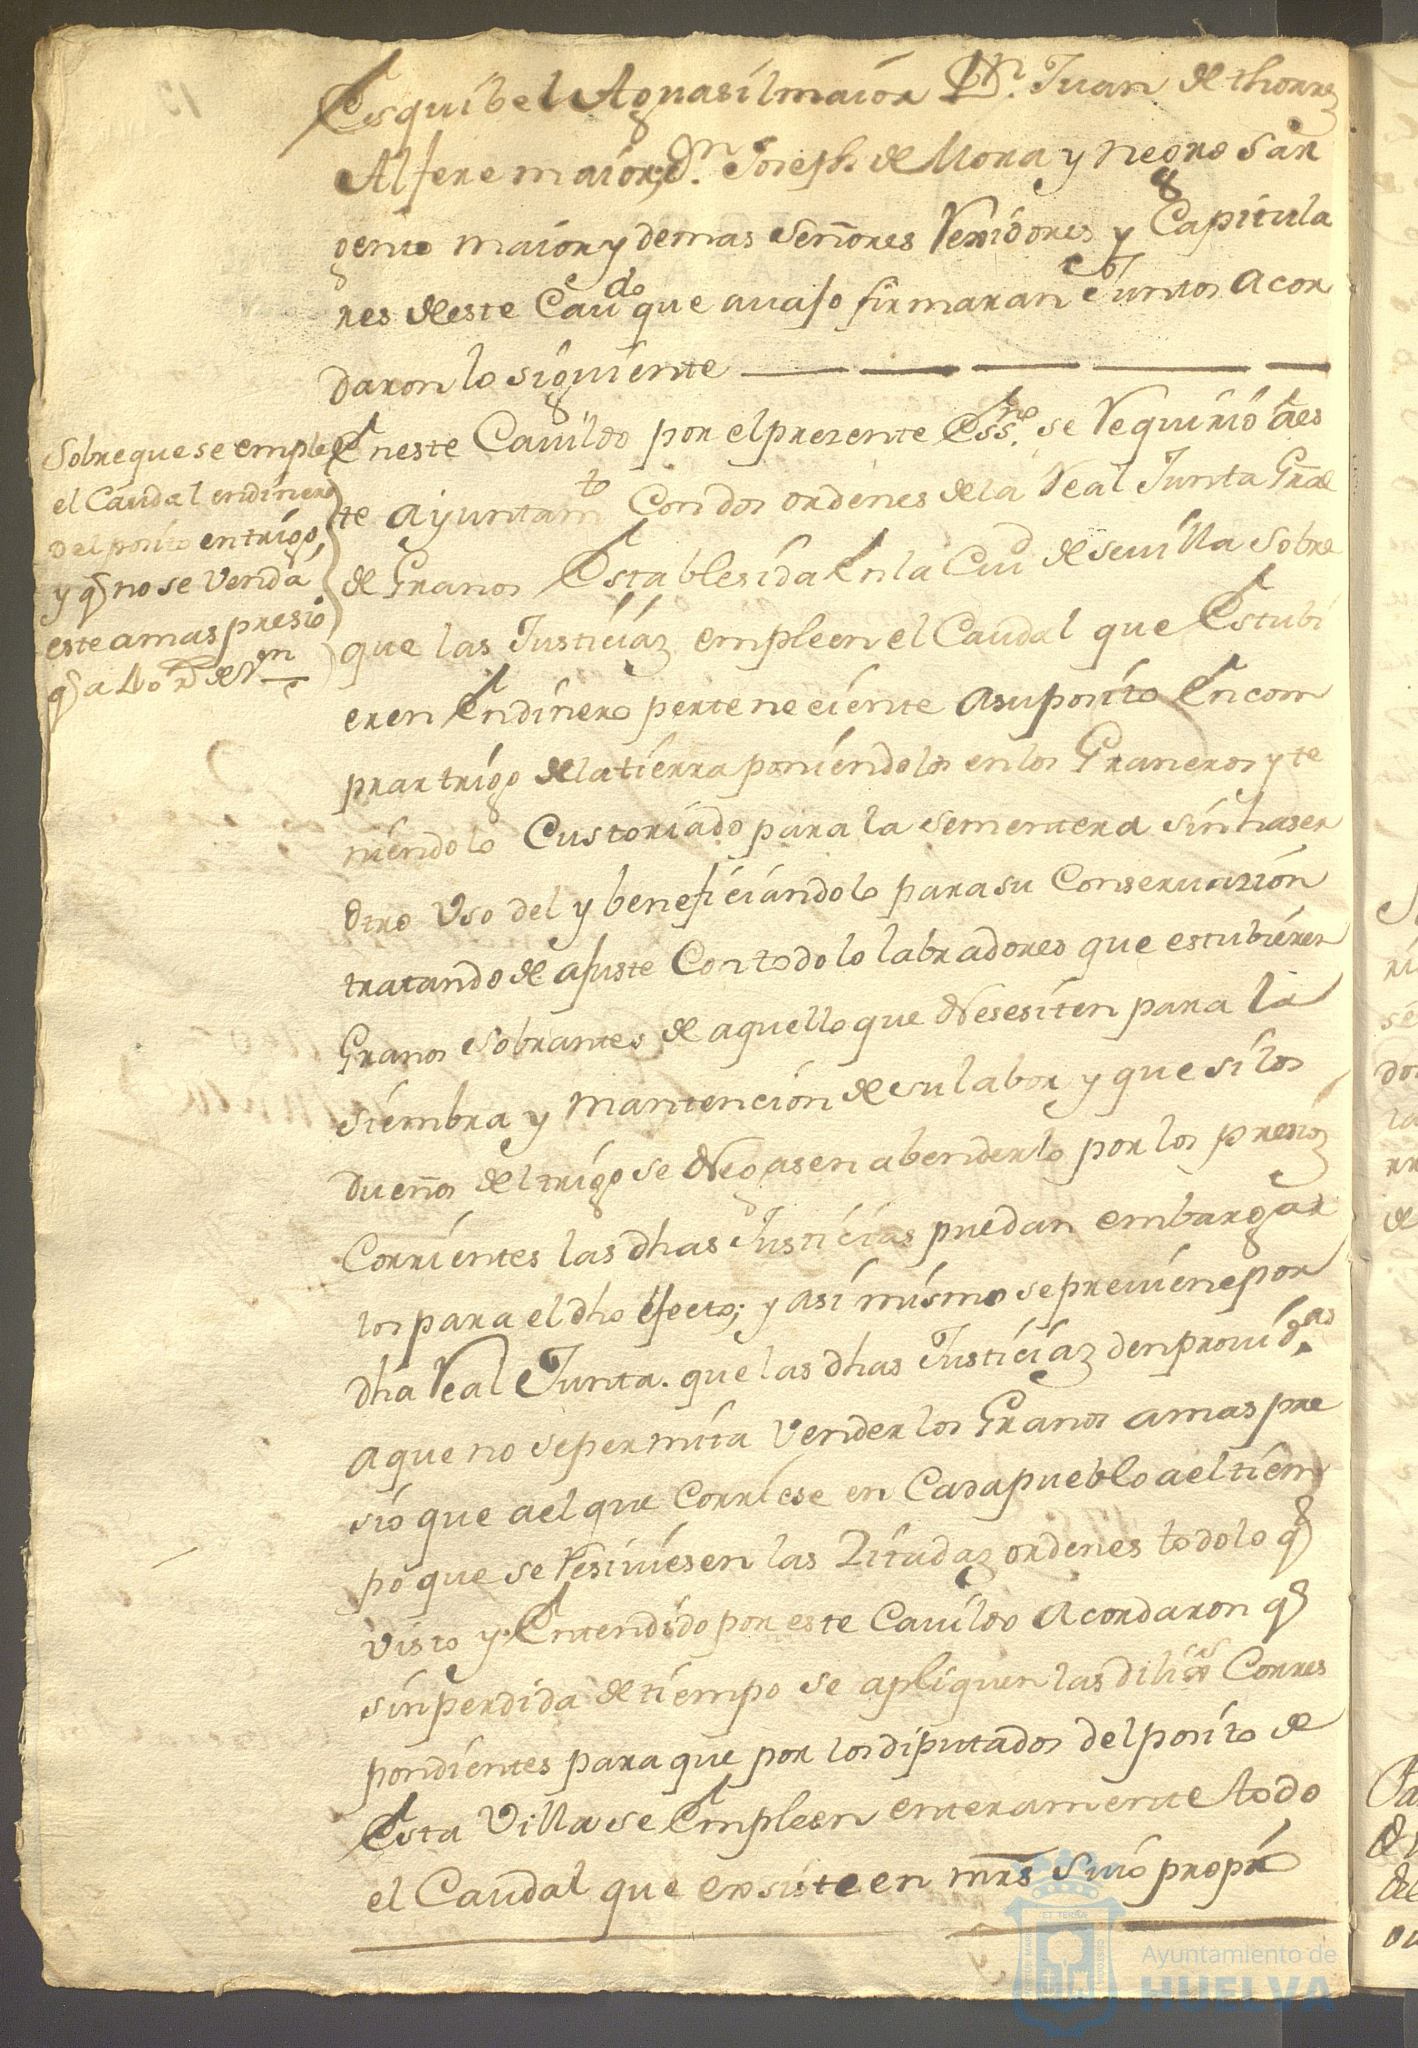 Esquibel Alguasil maior Dn. Juan de thorres
Alfere maior, Dn. Joseph de Mora y negro Sar
gento maior y demas señores Rexidores y Capitula
res deeste Caudo que auajo firmaran Juntos acor
daron lo siguiente
Sobre que se emplee
el Caudal en dinero
del posito en trigo,
y q no se venda
este a mas presio
q a 40 rs de Vn
En este Cauildo por el prezente Essno. se Requirió a es
te Ayuntamto Con dos ordenes de la Real Junta Gral
de Granos Establesida En la Ciud de seuilla sobre
que las Justiciaz empleen el Caudal que Estubi
eren En dinero perteneciente a su posito En com
prar trigo de la tierra poniendolos en los Graneros y te
niendolo Custoriado para la sementera sin haser
otro Uso del y beneficiandolo para su Conseruazion
tratando de ajuste Con todo lo labradores que estubieren
Granos sobrantes de aquello que Nesesiten para la
siembra y mantencion de su labor y que si los
dueños del trigo se Negasen a benderlo por los presioz
Corrientes las dhas Justicias puedan embargar
los para el dho efecto; y asi mismo se preuiene por
dha Real Junta. que las dhas Justiciaz den prouidas
a que no se permita Vender los Granos a mas pre
sio que a el que Corriese en Cada pueblo a el tiem
po que se Resiuiesen las Zitadaz ordenes todo lo q
visto y Entendido por este Cauildo Acordaron q
sin perdida de tiempo se apliquen las dilias Corres
pondientes para que por los diputados del posito de
Esta Villa se Empleen enteramente todo
el Caudal que exsiste en mrs suio propio
Ayuntamiento de
HUELVA